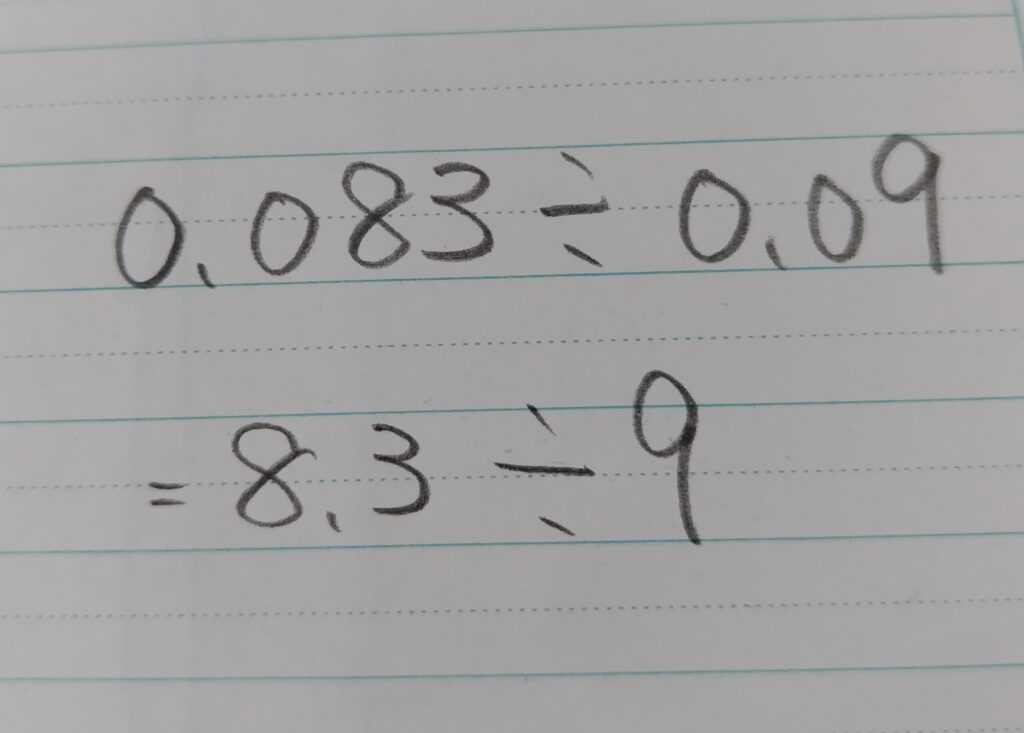 0.083÷0.09
=8.3÷9